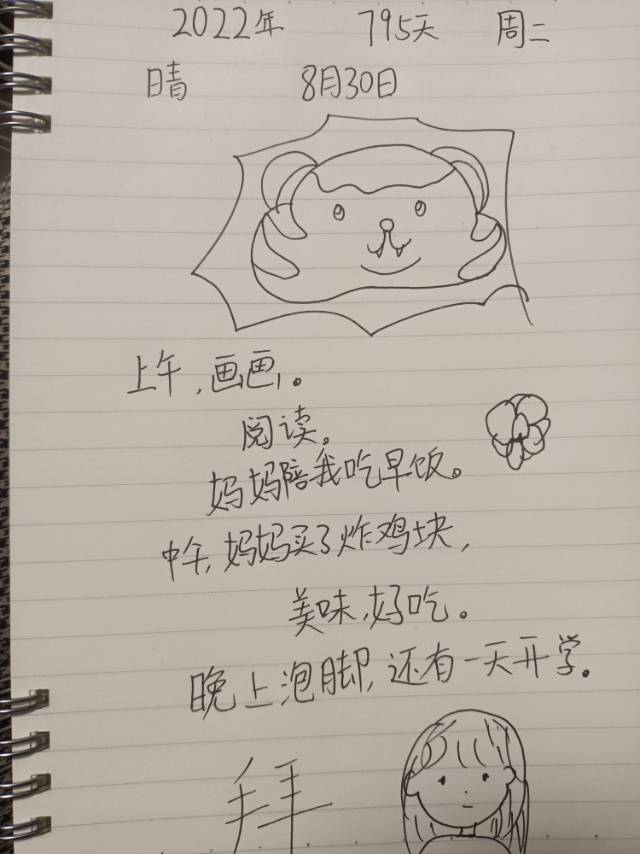 2022年 795天 周二
晴 8月30日
上午,画画。
阅读。
妈妈陪我吃早饭。
中午,妈妈买了炸鸡块,
美味,好吃。
晚上泡脚,还有一天开学。
拜